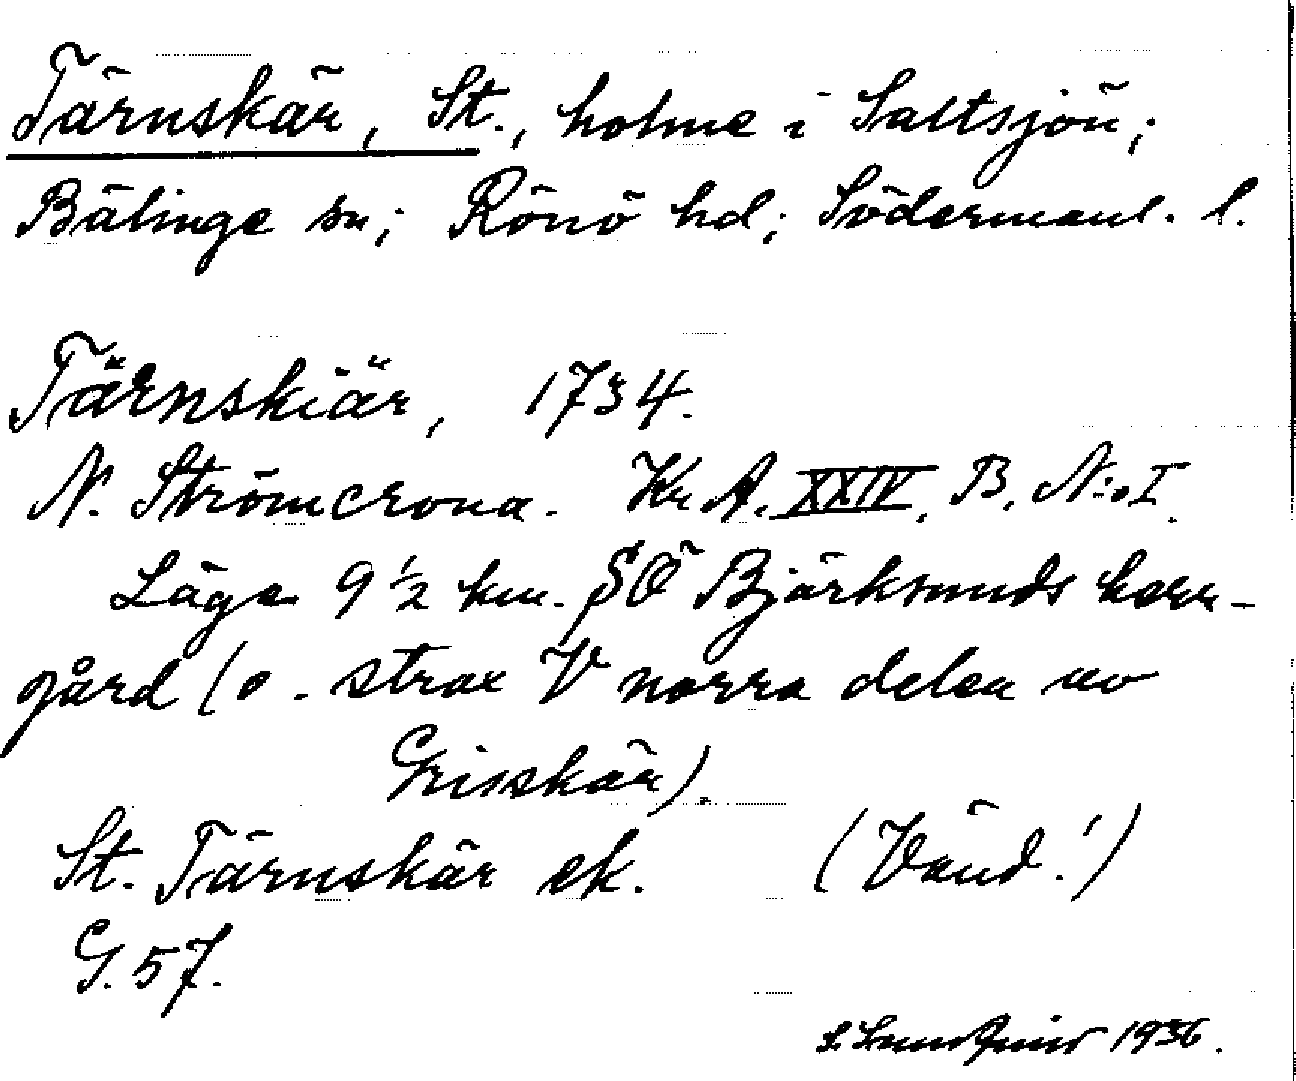 Tärnskär, St., holme i Saltsjön;
Bälinge sn; Rönö hd; Södermanl. l.
Tärnskiär, 1734.
N. Strömcrona. Kr. A. XXIV. B. N:o I.
Läge 9 ½ km. SÖ Björksunds herr-
gård (o. strax V norra delen av
Grisskär).
St. Tärnskär ek. (Vänd!)
G. 57.
S. Lundqvist 1936.